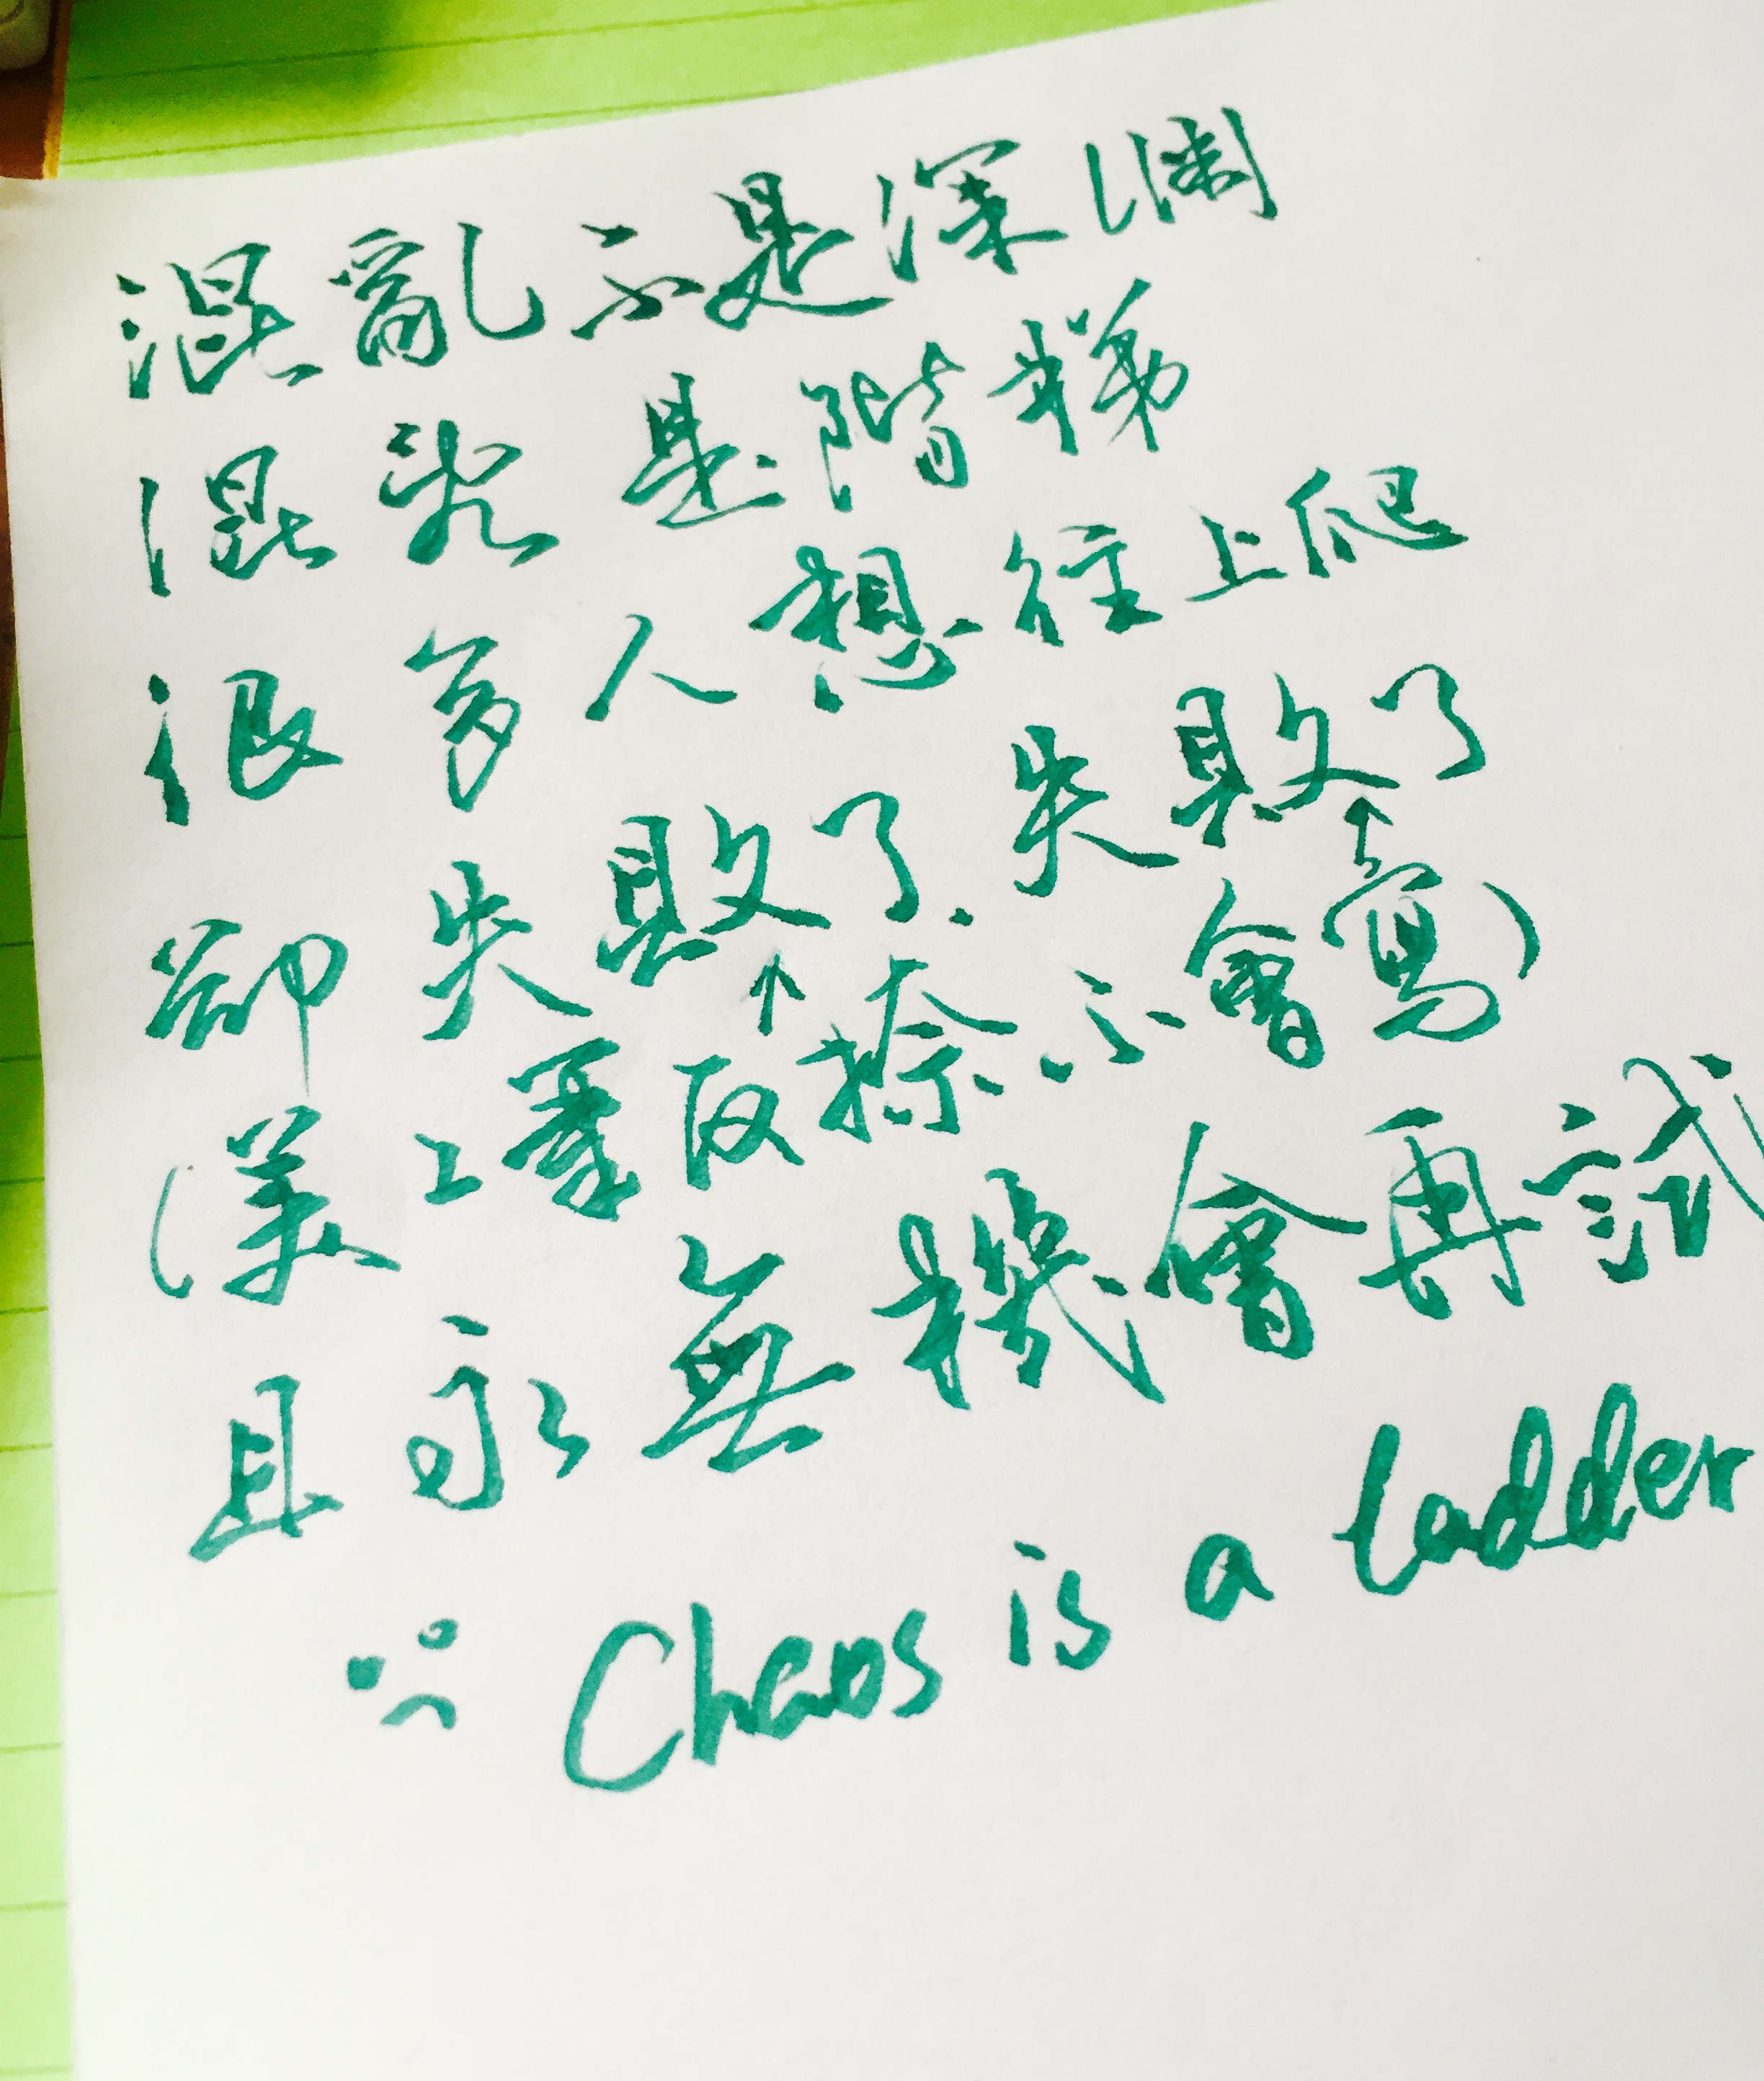 混亂不是深淵
混亂是階梯
很多人想往上爬
卻失敗了 失敗了
反捺不會寫)
且永無機會再試
Chaos is a ladder